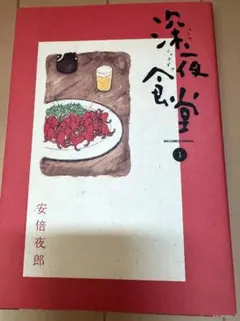 深夜食堂
1
安倍夜郎